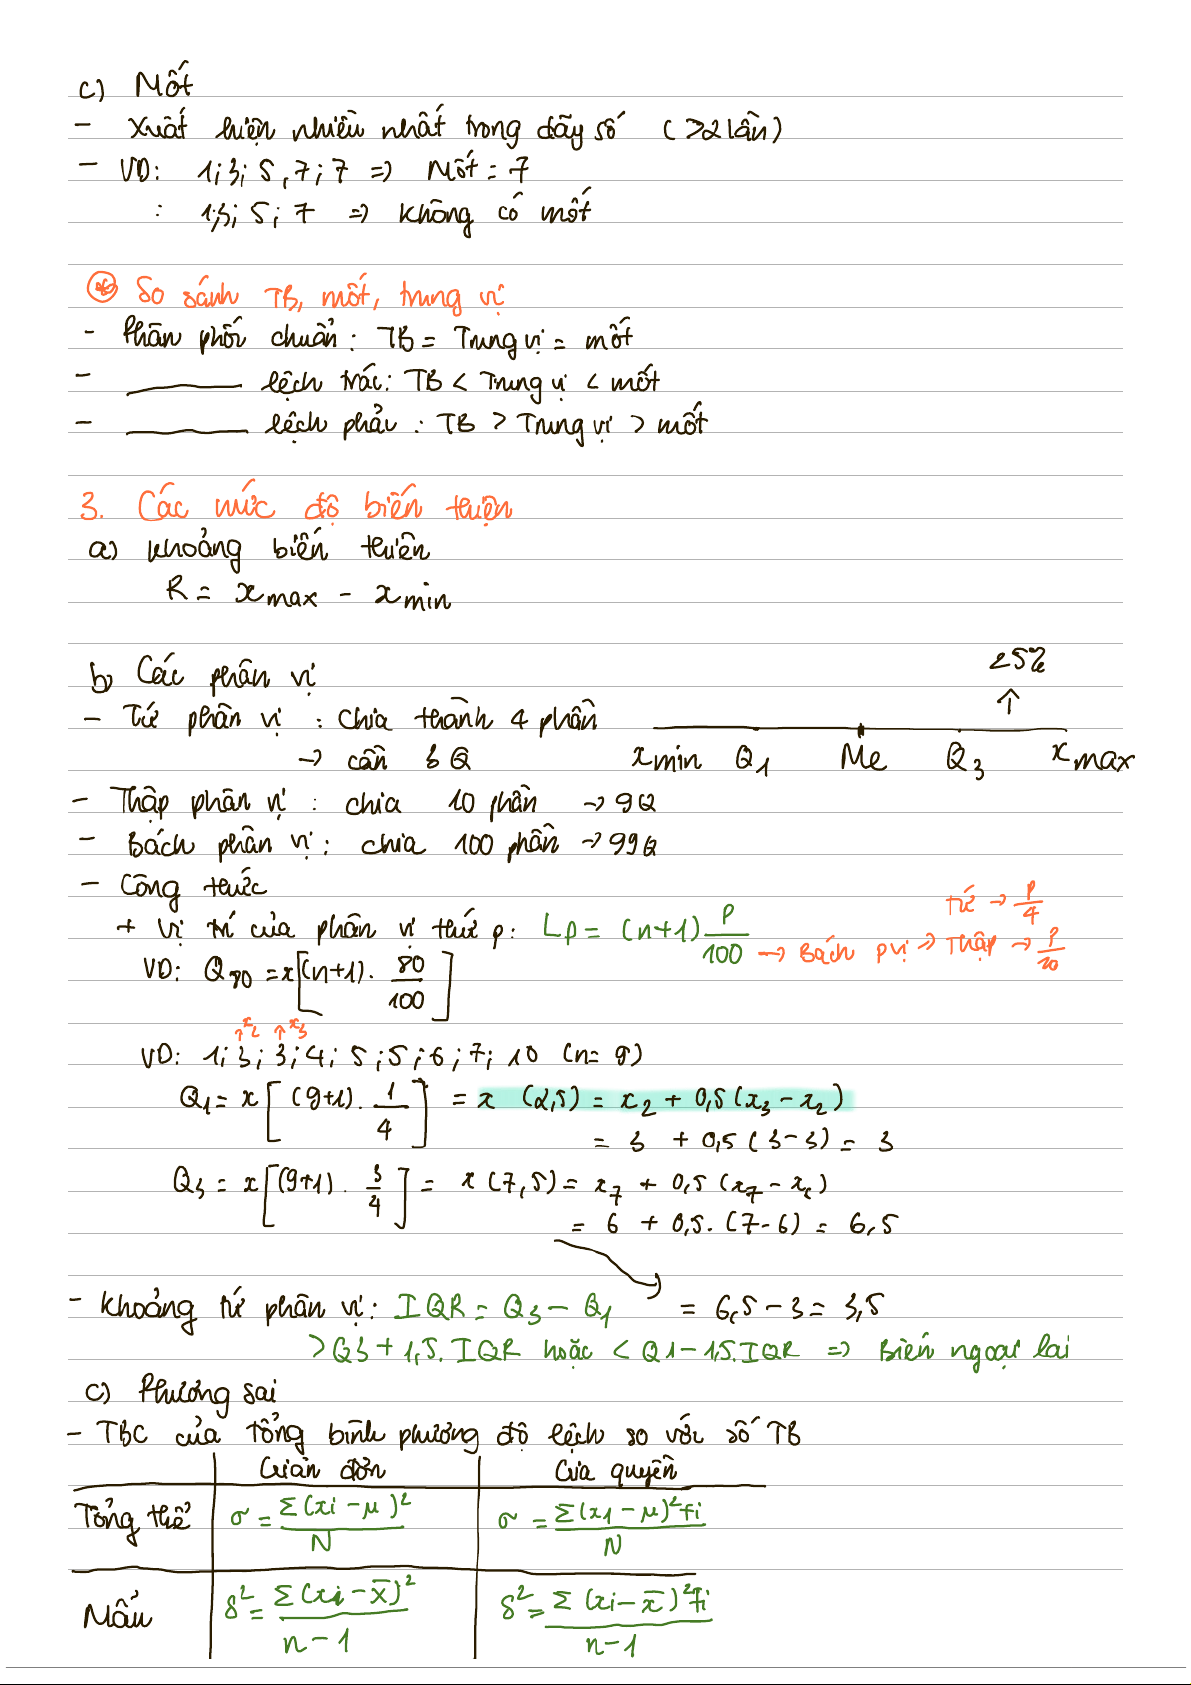 c) Mốt
- Xuất hiện nhiều nhất trong dãy số (>2 lần)
- VD: 1; 3; 5, 7; 7 => Mốt = 7
: 1; 3; 5; 7 => không có mốt
So sánh TB, mốt, trung vị
- Phân phối chuẩn: TB = Trung vị = mốt
- ______ lệch trái: TB < Trung vị < mốt
- ______ lệch phải: TB > Trung vị > mốt
3. Các mức độ biến thiên
a) Khoảng biến thiên
R = xmax - xmin
b) Các phân vị
25%
↑
- Tứ phân vị: chia thành 4 phần
→ cần 3 Q
xmin Q1 Me Q3 xmax
- Thập phân vị: chia 10 phần → 9Q
- Bách phân vị: chia 100 phần → 99Q
- Công thức
Tứ → P/4
+ Vị trí của phân vị thứ p: Lp = (n+1) P/100 → Bách pvị → Thập → P/10
VD: Q80 = x[(n+1). 80/100]
↑x2 ↑x3
VD: 1; 3; 3; 4; 5; 5; 6; 7; 10 (n = 9)
Q1 = x[(9+1). 1/4] = x (2,5) = x2 + 0,5 (x3 - x2)
= 3 + 0,5 (3-3) = 3
Q3 = x[(9+1). 3/4] = x (7,5) = x7 + 0,5 (x7 - x )
= 6 + 0,5. (7-6) = 6,5
- Khoảng tứ phân vị: IQR = Q3 - Q1 = 6,5 - 3 = 3,5
> Q3 + 1,5. IQR hoặc < Q1 - 1,5. IQR => Biến ngoại lai
c) Phương sai
- TBC của tổng bình phương độ lệch so với số TB
Giản đơn Gia quyền
Tổng thể σ = Σ(xi - μ)²/N σ = Σ(x1 - μ)²fi/N
Mẫu s² = Σ(xi - x̄)²/n-1 s² = Σ(xi - x̄)²fi/n-1